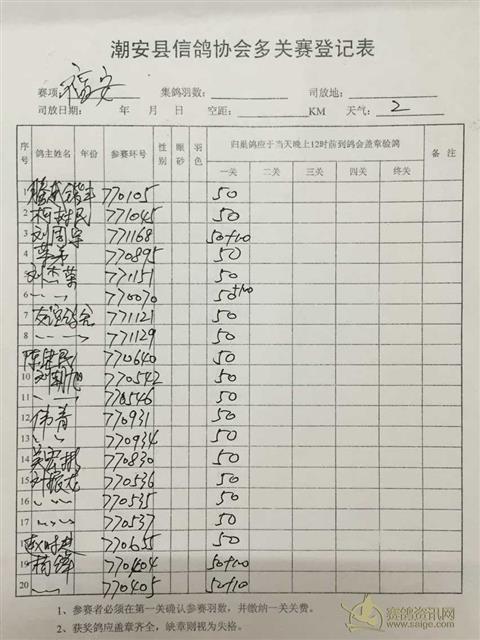 潮安县信鸽协会多关赛登记表
赛项: 福安 集鸽羽数: 司放地:
司放日期: 年 月 日 空距: KM 天气: 2
序号 鸽主姓名 年份 参赛环号 性别 眼砂 羽色 归巢鸽应于当天晚上12时前到鸽会盖章验鸽 备注
一关 二关 三关 四关 终关
1 770105 50
2 柯树民 771045 50
3 刘周宇 771168 50+10
4 770895 50
5 刘杰荣 771151 50
6 〃 〃 770070 50+10
7 友谊鸽舍 771121 50
8 〃 〃 771129 50
陈建民 770640 50
10 刘朝旭 770542 50
11 〃 〃 770546 50
12 伟青 770931 50
13 〃 〃 770934 50
14 吴宏彬 770830 50
15 叶振龙 770536 50
16 〃 〃 770535 50
17 〃 〃 770537 50
赵时进 770655 50
19 楠锋 770404 50+10
20 〃 770405 50+10
1、参赛者必须在第一关确认参赛羽数，并缴纳一关关费。
2、获奖鸽应盖章齐全，缺章则视为失格。
赛鸽资讯网
www.saige.com